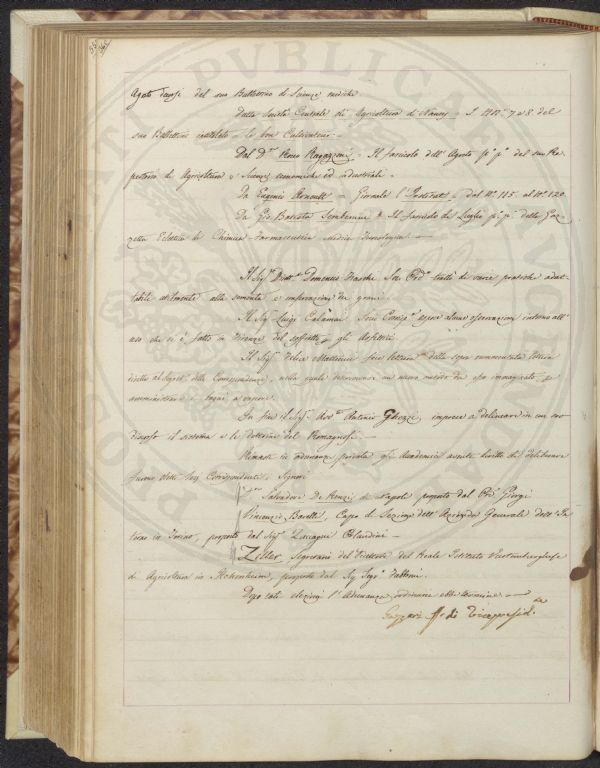 Agosto scorsi del suo Bullettino di Scienze mediche
Dalla Società Centrale di Agricoltura di Nancy = I Nri. 7 e 8 del
suo Bullettino intitolato - Le bon Cultivateur =
Dal Dr. Rocco Ragazzoni = Il fascicolo dell'Agosto po. po. del suo Re-
pertorio di Agricoltura e Scienze economiche ed industriali =
Da Eugenio Arnoult = Giornale l' = dal No. 115. al No. 120.
Da Gio. Batista Sembenini = Il fascicolo di Luglio po. po. della Gaz-
zetta Eclettica di Chimica-Farmaceutica Medica Tecnologica =
Il Sigr. Domenico Socio Ordo. trattò di varie pratiche adat-
tabili utilmente alla sementa e dei grani.
Il Sigr. Luigi Calamai Socio Corrispe. espose alcune osservazioni intorno all'
uso che si è fatto in Firenze del soffietto gli
Il Sigr. Felice Matteucci fece lettura della sopra rammentata lettera
diretta al Segro. delle Corrispondenze, nella quale un nuovo metodo da esso immaginato per
amministrare i bagni a vapore.
In fine il Sigr. Avvo. Antonio Ghezzi, imprese a delineare in un suo
discorso il sistema e le dottrine del Romagnosi.
Rimasti in adunanza privata gli Accademici aventi diritto di deliberare
furono eletti Soci Corrispondenti i Signori
Salvadore De Renzis di Napoli proposto dal Pre. Giorgi
Vincenzio Barelli, Capo di Sezione dell'Azienda Generale dell'In-
terno in Torino, proposto dal Sigr. Orlandini =
Zeller, Segretario del Reale Istituto Vurtemberghese
di Agricoltura in Hohenheim, proposto dal Sig. Segro. Tabbrini.
Dopo tali elezioni l'Adunanza ordinaria ebbe termine =